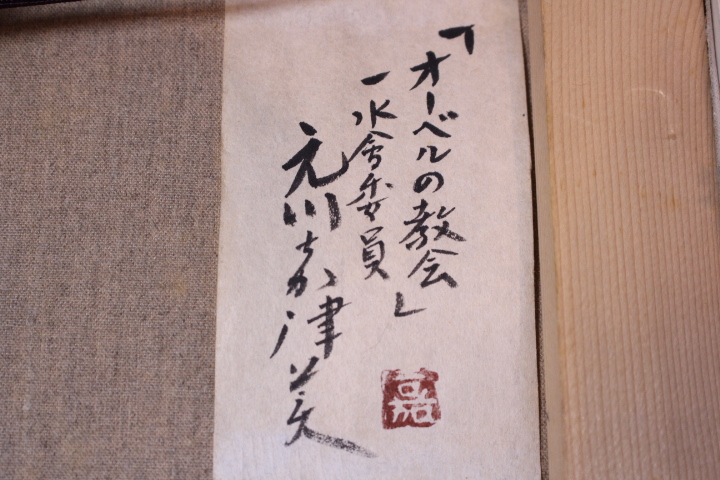 「オーベルの教会」
一水會委員
元川嘉津美
嘉